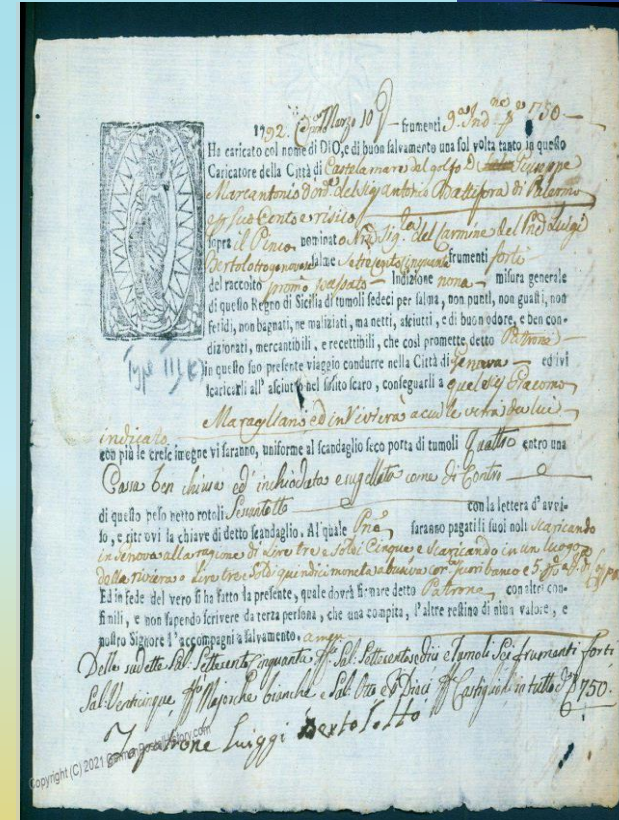 1792. Marzo 10 frumenti 9.a Ind.ne 750
Ha caricato col nome di DIO, e di buon salvamento una sol volta tanto in questo
Caricatore della Città di Castelamare del golfo D. Giuseppe
Marcantonio d'ord.e del Sig. Antonio Battifora di Palermo
e risico
sopra il Pinco nominato del Carmine del Luigi
Bertolotto genovese salme Settecentocinquanta frumenti forti
del raccolto passato Indizione nona misura generale
di questo Regno di Sicilia di tumoli sedeci per salma, non puntl, non guasti, non
fetidi, non bagnati, ne maliziati, ma netti, asciutti, e di buon odore, e ben con-
dizionati, mercantibili, e recettibili, che così promette detto Patrone
in questo suo presente viaggio condurre nella Città di Genova ed ivi
scaricarli all' asciutto nel solito scaro, conseguarli a quel Sig. Giacomo
Maragliano ed in Rivierà a cui le verrà da lui
indicato
con più le cresc imegne vi saranno, uniforme al scandaglio seco porta di tumoli Quattro entro una
Cassa ben chiusa ed' inchiodata e sugellata come di Contro
di questo peso netto rotoli Sessantotto con la lettera d' avvi-
so, e ritrovi la chiave di detto scandaglio. Al quale saranno pagati li suoi noli scaricando
in Genova alla ragione di Lire tre e Soldi Cinque e scaricando in un luogo
della riviera a Lire tre e Soldi quindici moneta fuori banco e 5
Ed in fede del vero si ha fatto la presente, quale dovrà firmare detto Patrone con altre con-
simili, e non sapendo scrivere da terza persona, che una compita, l' altre restino di niun valore, e
nostro Signore l' accompagni a salvamento. amen
Delle sudette Sal. Settecento Cinquanta, Sal. Settecentosedici e Tumoli Sei frumenti forti
Sal. Venticinque Majorche bianche e Sal. Otto e Dieci Castiglioni in tutto 750.
patrone Luiggi Bertolotto
Type III
Copyright (C) 2021 GermanPostalHistory.com